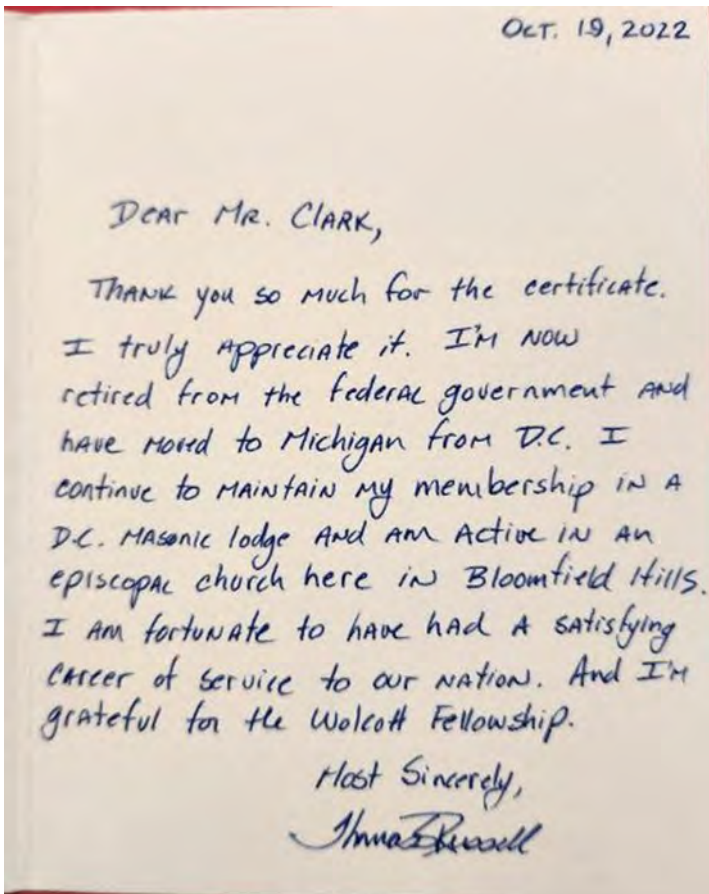 Oct. 19, 2022
Dear Mr. Clark,
Thank you so much for the certificate.
I truly appreciate it. I'm now
retired from the federal government and
have moved to Michigan from D.C. I
continue to maintain my membership in a
D.C. Masonic lodge and am active in an
episcopal church here in Bloomfield Hills.
I am fortunate to have had a satisfying
career of service to our nation. And I'm
grateful for the Wolcott Fellowship.
Most Sincerely,
Thomas Russell